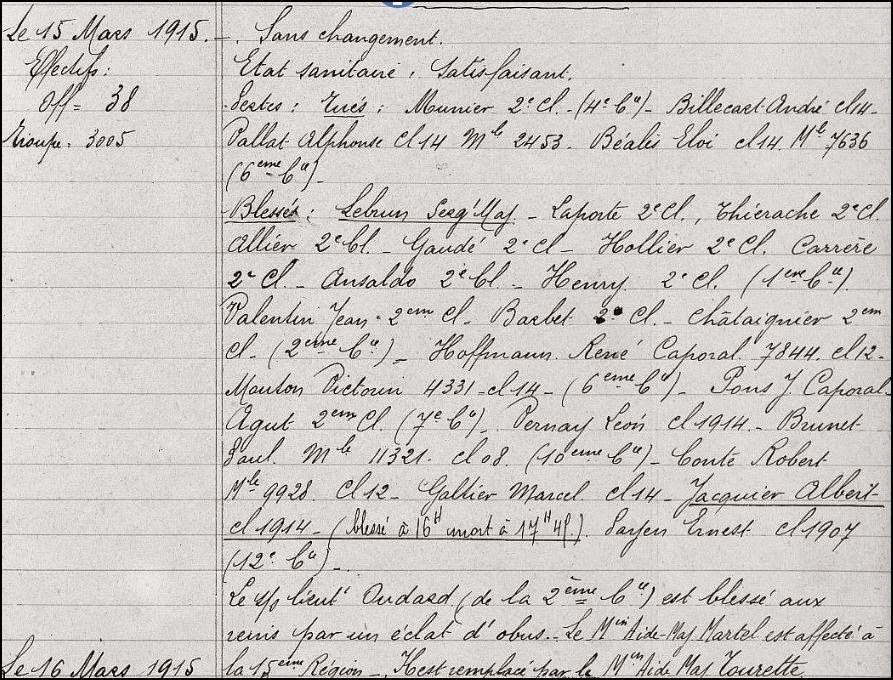 Le 15 Mars 1915. - Sans changement.
Effectifs : Etat sanitaire : Satisfaisant.
Off = 38 Pertes : Tués : Munier 2e Cl. - (4e Cie) - Billecart André cl 14 -
Troupe : 3005 Pallat Alphonse Cl 14 Mle 2453 - Béalis Eloi cl 14. Mle 7636
(6eme Cie) -
Blessés : Lebrun Serg' Maj - Laporte 2e Cl., Thierache 2e Cl.
Allier 2e Cl. - Gaudé 2e Cl - Hollier 2e Cl. Carrère
2e Cl. - Ansaldo 2e Cl. - Henry 2e Cl. (1ere Cie)
Valentin Jean - 2em Cl - Barbet 2e Cl. - Châtaignier 2em
Cl. - (2eme Cie) - Hoffmann René Caporal 7844. cl 12 -
Mouton Victorin 4331 - cl 14 - (6eme Cie) - Pons J. Caporal -
Agut 2em Cl. (7e Cie) - Pernay Léon cl 1914 - Brunet
Paul. Mle 11321. Cl 08. (10eme Cie) - Conte Robert
Mle 9928. Cl 12 - Gallier Marcel cl 14 - Jacquier Albert -
cl 1914 - (blessé à 16H mort à 17H 45.) Ernest cl 1907
(12e Cie) -
Le s/s lieut' Oudard (de la 2ème Cie) est blessé aux
reins par un éclat d'obus. - Le Min Aide-Maj Martel est affecté à
Le 16 Mars 1915 la 15eme Région - Il est remplacé par le Min Aide Maj Tourette